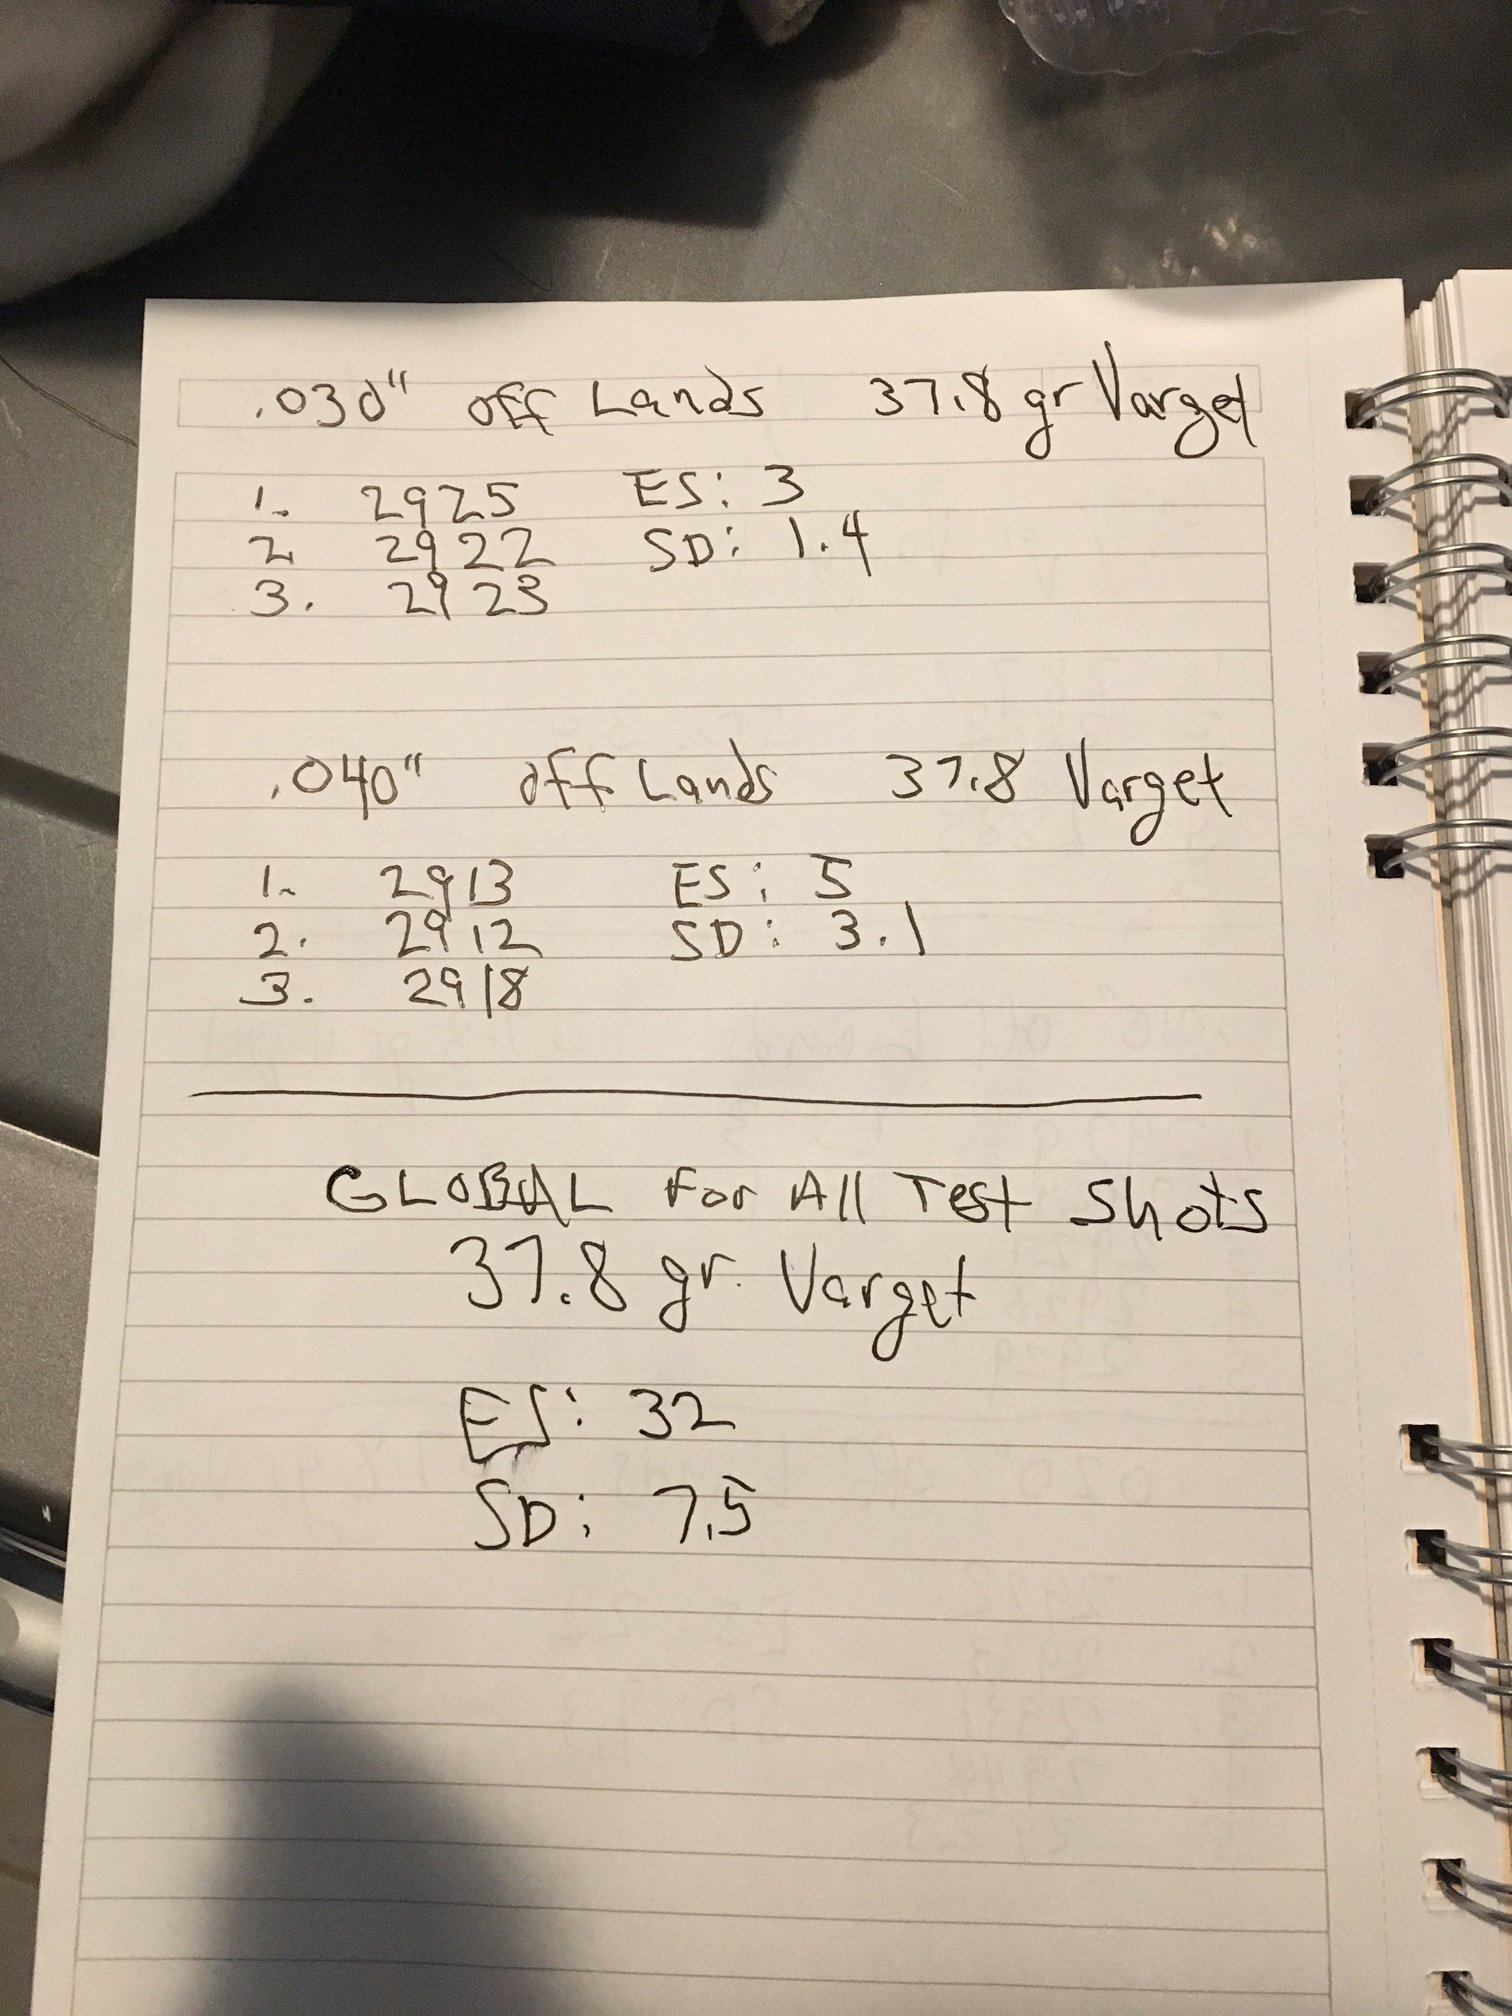 .030" off Lands 37.8 gr Varget
1. 2925 ES: 3
2. 2922 SD: 1.4
3. 2923
.040" off Lands 37.8 Varget
1. 2913 ES: 5
2. 2912 SD: 3.1
3. 2918
GLOBAL For All Test Shots
37.8 gr. Varget
ES: 32
SD: 7.5